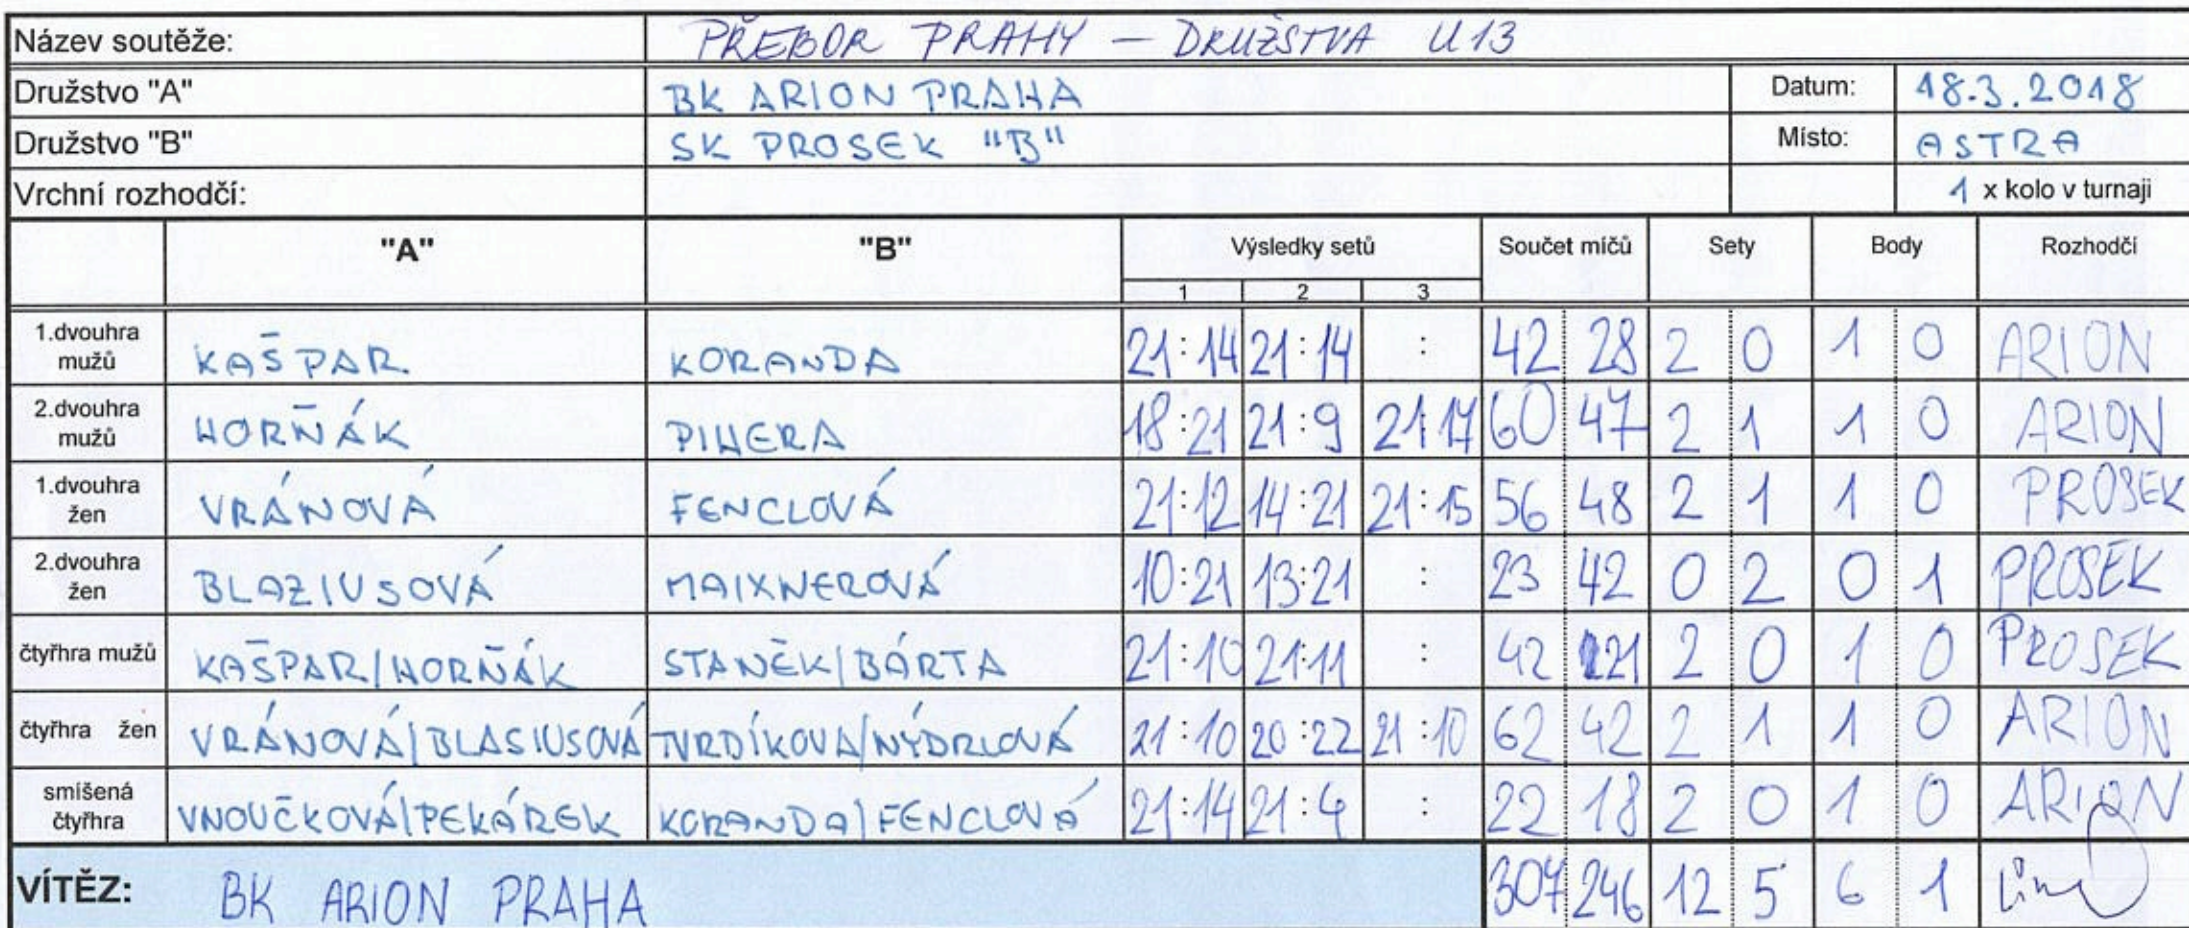 Název soutěže: PŘEBOR PRAHY – DRUŽSTVA U13
Družstvo "A" BK ARION PRAHA Datum: 18.3.2018
Družstvo "B" SK PROSEK "B" Místo: ASTRA
Vrchní rozhodčí: 1 x kolo v turnaji
"A" "B" Výsledky setů Součet míčů Sety Body Rozhodčí
1 2 3
1.dvouhra mužů KAŠPAR. KORANDA 21:14 21:14 : 42 28 2 0 1 0 ARION
2.dvouhra mužů HORŇÁK PIHERA 18:21 21:9 21:17 60 47 2 1 1 0 ARION
1.dvouhra žen VRÁNOVÁ FENCLOVÁ 21:12 14:21 21:15 56 48 2 1 1 0 PROSEK
2.dvouhra žen BLAZIUSOVÁ MAIXNEROVÁ 10:21 13:21 : 23 42 0 2 0 1 PROSEK
čtyřhra mužů KAŠPAR/HORŇÁK STANĚK/BÁRTA 21:10 21:11 : 42 21 2 0 1 0 PROSEK
čtyřhra žen VRÁNOVÁ/BLASIUSOVÁ TVRDÍKOVÁ/NÝDRLOVÁ 21:10 20:22 21:10 62 42 2 1 1 0 ARION
smíšená čtyřhra VNOUČKOVÁ/PEKÁREK KORANDA/FENCLOVÁ 21:14 21:4 : 22 18 2 0 1 0 ARION
VÍTĚZ: BK ARION PRAHA 307 246 12 5 6 1